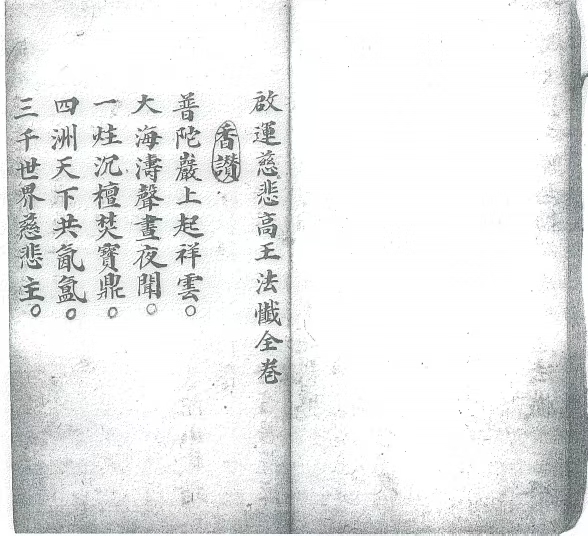 啟運慈悲高王法懺全卷
香讚
普陀巖上起祥雲。
大海濤聲晝夜聞。
一炷沉檀焚寶鼎。
四洲天下共氤氳。
三千世界慈悲主。